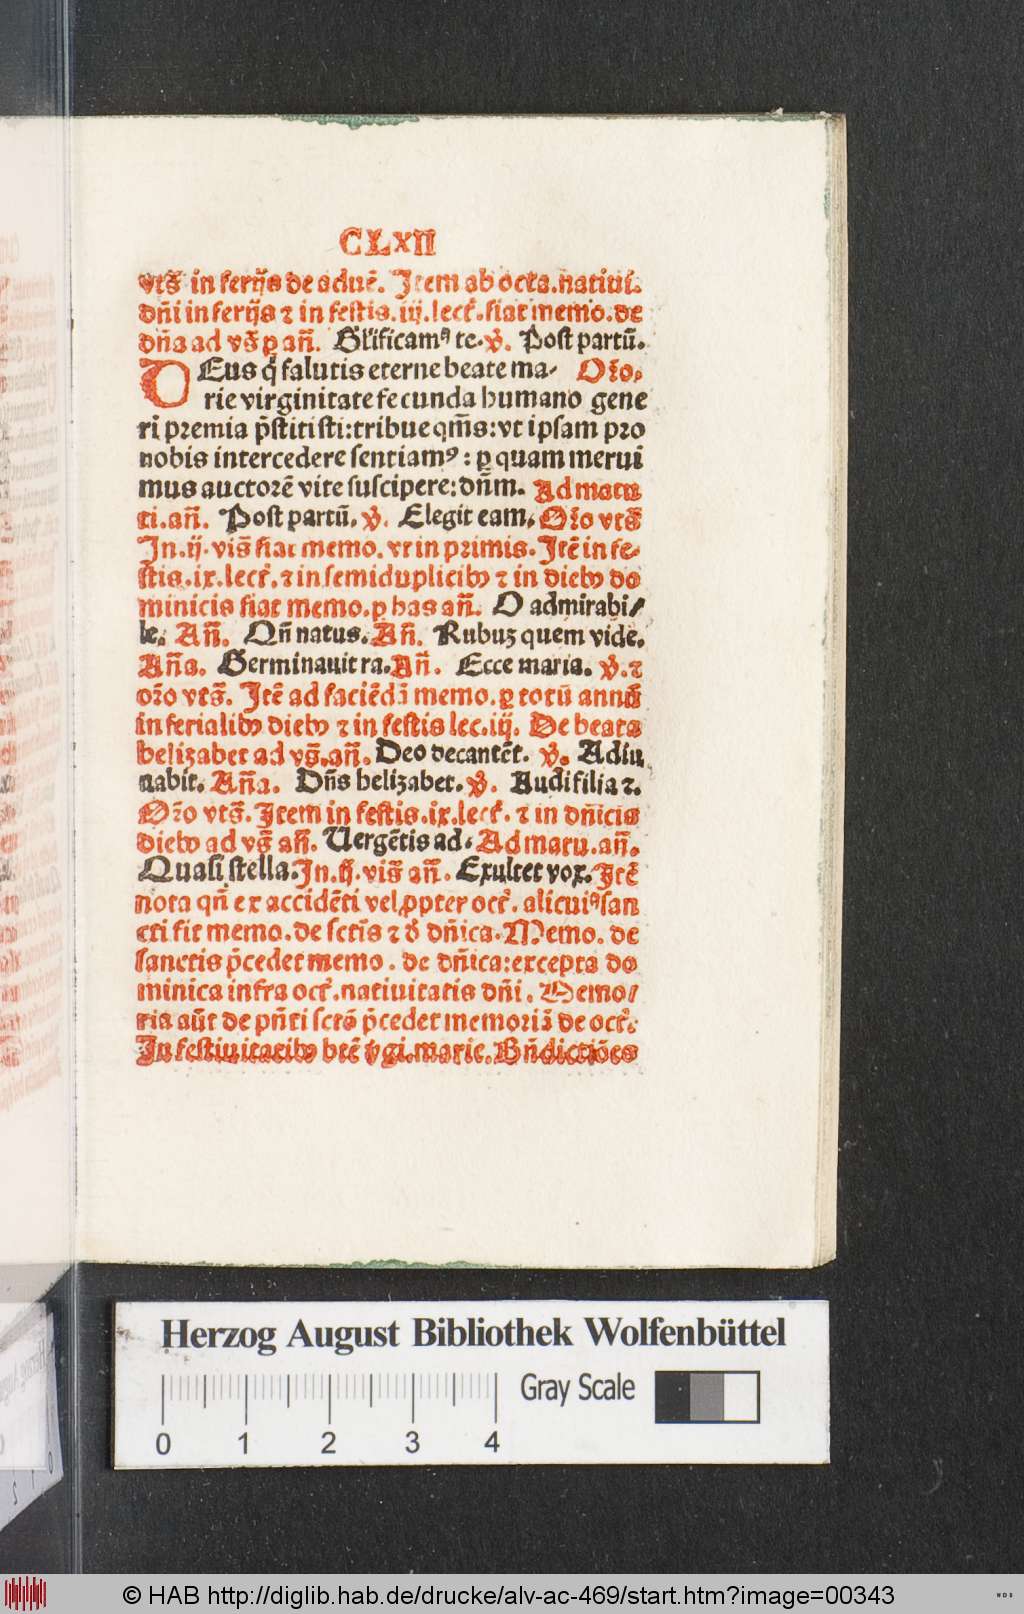 CLXII
vts̄ in ferijs de aduē. Item ab octa. natiui.
dn̄i in ferijs ⁊ in festis. iij. lect̄. fiat memo. de
dn̄a ad vs̄ ꝑ an̄. Gl̄ificamꝰ te. ℣. Post partū.
DEus q̄ salutis eterne beate ma- Or̄o.
rie virginitate fecunda humano gene
ri premia p̄stitisti: tribue qm̄s: vt ipsam pro
nobis intercedere sentiamꝰ: ꝑ quam merui
mus auctorē vite suscipere: dn̄m. Ad matu
ti. an̄. Post partū. ℣. Elegit eam. Or̄o vts̄
In. ij. vis̄ fiat memo. vt in primis. Itē in fe-
stis. ix. lect̄. ⁊ in semiduplicibꝫ ⁊ in diebꝫ do
minicis fiat memo. ꝑ has an̄. O admirabi/
le. An̄. Qn̄ natus. An̄. Rubuꝫ quem vide.
An̄a. Germinauit ra. An̄. Ecce maria. ℣. ⁊
or̄o vts̄. Itē ad faciēdā memo. ꝑ totū annū
in ferialibꝫ diebꝫ ⁊ in festis lec. iij. De beata
helizabet ad vs̄. an̄. Deo decantēt. ℣. Adiu
uabit. An̄a. Dn̄s helizabet. ℣. Audi filia ⁊.
Or̄o vts̄. Item in festis. ix. lect̄. ⁊ in dn̄icis
diebꝫ ad vs̄ an̄. Vergētis ad. Ad matu. an̄.
Quasi stella. In. ij. vis̄ an̄. Exultet vox. Itē
nota qn̄ ex accidēti vel ꝓpter oct̄. alicuiꝰ san
cti fit memo. de sctīs ⁊ d̄ dn̄ica. Memo. de
sanctis p̄cedet memo. de dn̄ica: excepta do
minica infra oct̄. natiuitatis dn̄i. Memo/
ria aūt de pn̄ti sctō p̄cedet memoriā de oct̄.
In festiuitatibꝫ btē v̄gi. marie. Bn̄dictiōes
Herzog August Bibliothek Wolfenbüttel
0 1 2 3 4
Gray Scale
© HAB http://diglib.hab.de/drucke/alv-ac-469/start.htm?image=00343